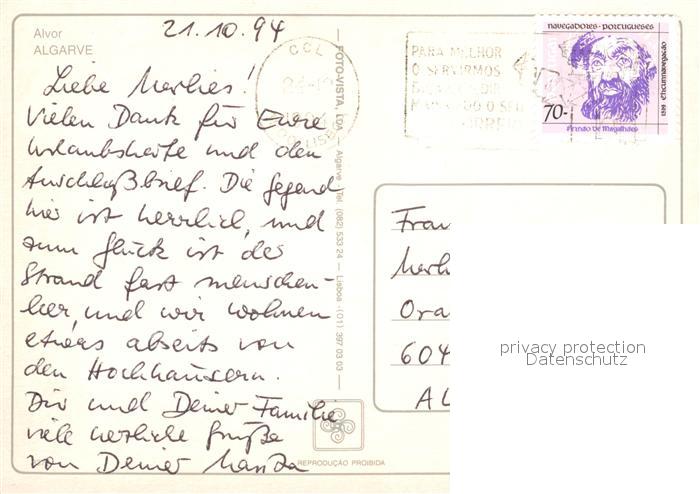 Alvor
ALGARVE
21.10.94
Liebe Marlies!
Vielen Dank für Eure
Urlaubskarte und den
Anschlußbrief. Die Gegend
hier ist herrlich, und
zum Glück ist der
Strand fast menschen-
leer, und wir wohnen
etwas abseits von
den Hochhäusern.
Dir und Deiner Familie
viele herzliche Grüße
von Deiner
FOTO-VISTA, LDA — Algarve - Tel. (082) 533 24 — Lisboa (011) 397 03 03
REPRODUÇÃO PROIBIDA
CCL
PARA MELHOR
O SERVIRMOS
NAVEGADORES · PORTUGUESES
70-
Fernão de Magalhães
Frau
Ora
604
privacy protection
Datenschutz